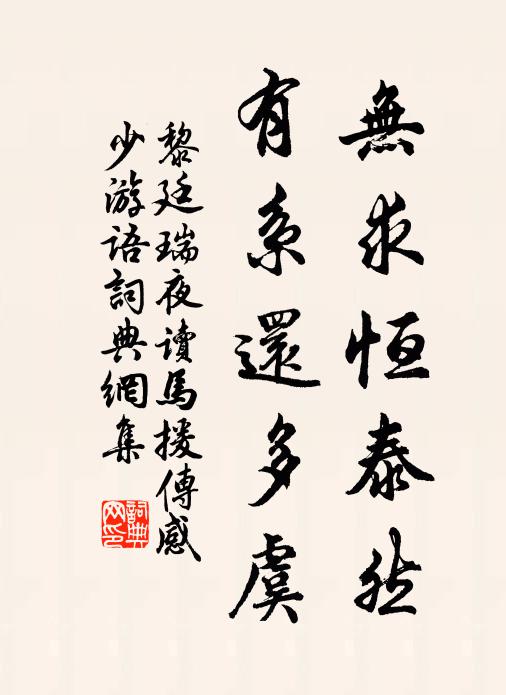 無求恒泰然
有系還多虞
黎廷瑞夜讀馬援傳感
少游語詞典網集
詞典
网印